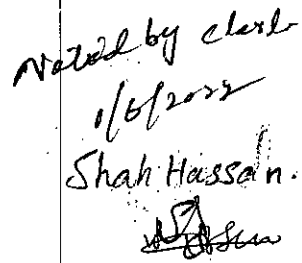 Noted by clerk
1/6/2022
Shah Hassan.